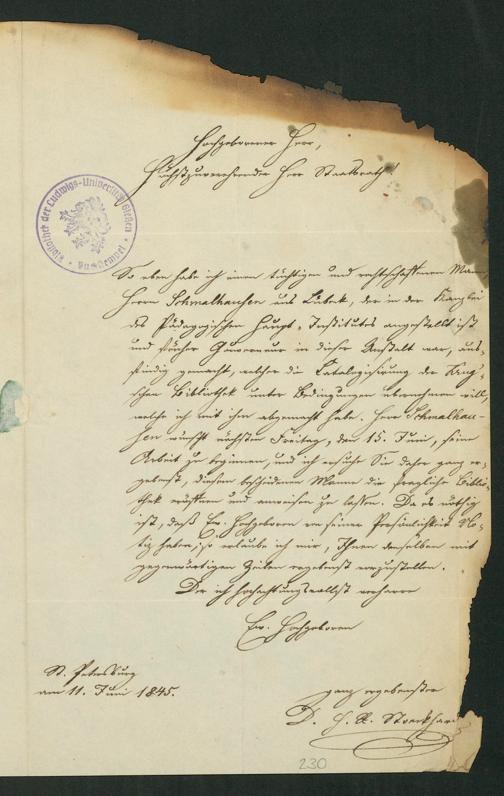 Hochgeborener Herr,
Höchstzuverehrender Herr Staatsrath!
Bibliothek der Ludwigs-Universität Gießen
So eben habe ich einen tüchtigen und rechtschaffenen Mann,
Herrn Schmalhausen aus Lübek, der in der Kanzlei
des Pädagogischen Haupt-Institutes angestellt ist
und früher Gouverneur in dieser Anstalt war, aus-
findig gemacht, welcher die Catalogisirung der Krug'-
schen Bibliothek unter Bedingungen übernehmen will,
welche ich mit ihm abgemacht habe. Herr Schmalhau-
sen wünscht nächsten Freitag, den 15. Juni, seine
Arbeit zu beginnen, und ich ersuche Sie daher ganz er-
gebenst, diesem bescheidenen Manne die fragliche Biblio-
thek eröffnen und anweisen zu lassen. Da es nöthig
ist, daß Ew. Hochgeboren von seiner Persönlichkeit No-
tiz haben, so erlaube ich mir, Ihnen denselben mit
gegenwärtigen Zeilen ergebenst vorzustellen.
Der ich hochachtungsvollst verharre
Ew. Hochgeboren
St. Petersburg
am 11. Juni 1845.
ganz ergebenster
D. H. R. Stoeckhardt
230